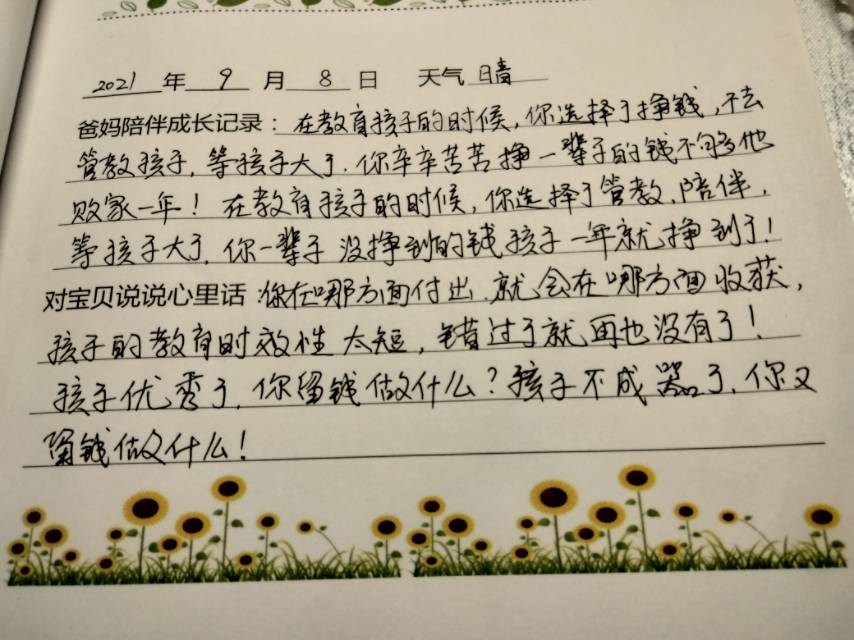 2021 年 9 月 8 日 天气 晴
爸妈陪伴成长记录：在教育孩子的时候，你选择了挣钱，不去
管教孩子，等孩子大了，你辛辛苦苦挣一辈子的钱不够他
败家一年！在教育孩子的时候，你选择了管教、陪伴，
等孩子大了，你一辈子没挣到的钱孩子一年就挣到了！
对宝贝说说心里话：你在哪方面付出，就会在哪方面收获，
孩子的教育时效性太短，错过了就再也没有了！
孩子优秀了，你留钱做什么？孩子不成器了，你又
留钱做什么！